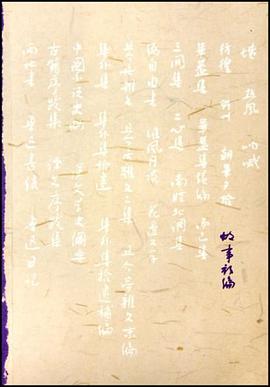 坟 热风 呐喊
彷徨 野草 朝花夕拾
华盖集 华盖集续编 而已集
三闲集 二心集 南腔北调集
伪自由书 准风月谈 花边文学
且介亭杂文 且介亭杂文二集 且介亭杂文末编
集外集 集外集拾遗 集外集拾遗补编
中国小说史略 汉文学史纲要
古籍序跋集 译文序跋集
两地书 鲁迅书信 鲁迅日记
故事新编